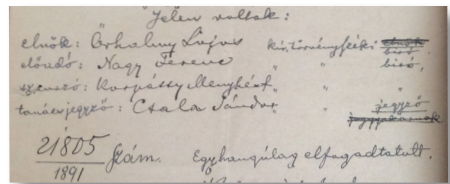 Jelen voltak:
elnök: Őrhalmy Lajos kir. törvényszék: elnök
biró,
előadó: Nagy Ferenc " " biró,
szavazó: Korpássy Menyhért " "
tanácsjegyző: Csala Sándor " jegyző
21805 / 1891 szám. Egyhangúlag elfogadtatott.